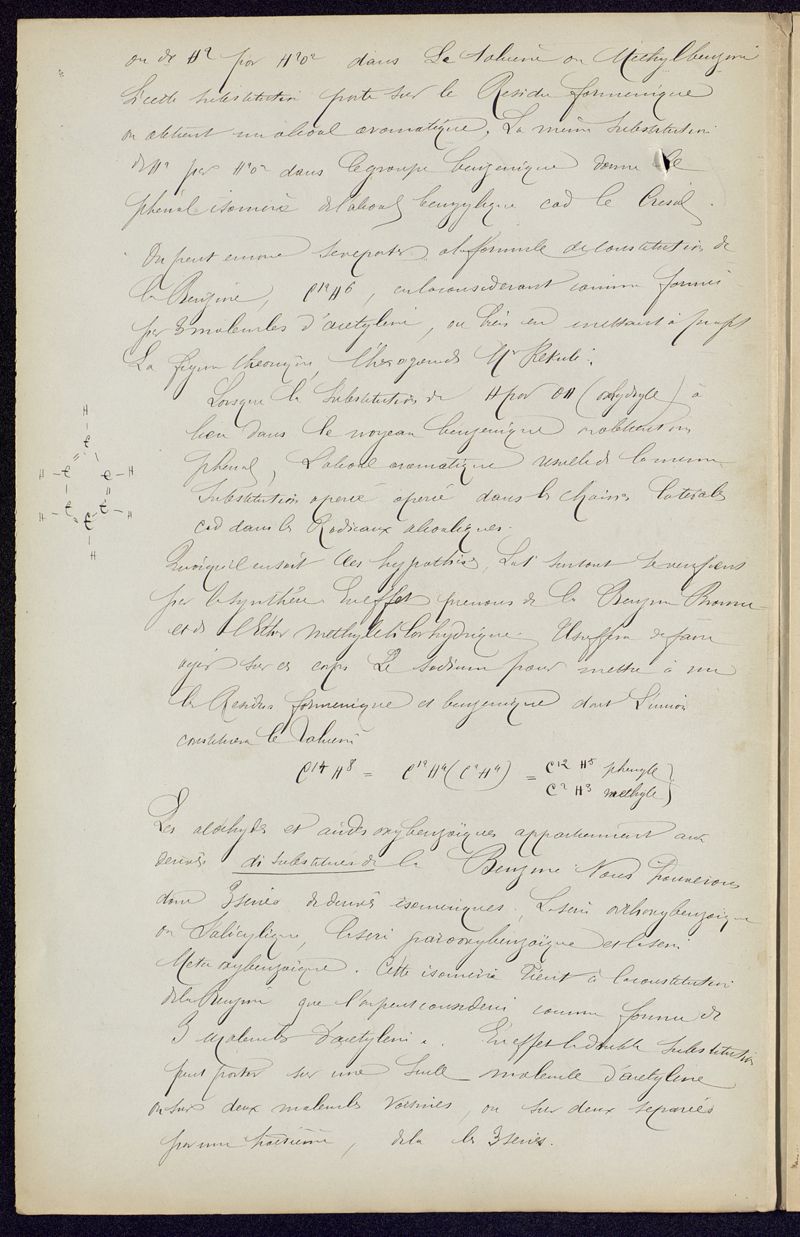 ou de H² par H²O² dans le Toluène ou Methylbenzine
Si cette substitution porte sur le Residu formenique
on obtient un alcool aromatique. La même substitution
de H² par H²O² dans le groupe benzenique donne le
phénol isomère de l'alcool benzylique cad le Cresol.
On peut encore se reporter à la formule de constitution de
la Benzine, C¹²H⁶, en la considerant comme formée
par 3 molecules d'acetylene, ou bien en mettant à profit
La figure théorique, l'hexagone de Mr Kekulé.
Lorsque la substitution de H par OH (oxhydryle) a
lieu dans le noyau benzenique on obtient un
phenol, L'alcool aromatique resulte de la meme
Substitution operée operée dans les chaines laterales
cad dans les Radicaux alcooliques.
H
C
H - C C - H
H - C C - H
C
H
Quoiqu'il en soit des hypothèses, surtout se verifient
par la synthèse. En effet prenons de la Benzine Bromée
et de l'Ether methylchlorhydrique. Il suffira de faire
agir sur ces corps le sodium pour mettre à nu
les Residus formenique et benzenique dont l'union
constituera le Toluène
C¹⁴H⁸ = C¹²H⁴(C²H⁴) = C¹² H⁵ phenyle }
C² H³ methyle }
Les aldehydes et acides oxybenzoïques appartiennent aux
derivés di substitués de la Benzine. Nous trouverons
donc 3 series de derivés isomeriques, La serie orthoxybenzoïque
ou Salicylique, la serie paraoxybenzoïque et la serie
Meta oxybenzoïque. Cette isomerie tient à la constitution
de la Benzine que l'on peut considerer comme formée de
3 molecules d'acetylene. En effet la double substitution
peut porter sur une seule molecule d'acetylene
ou sur deux molecules voisines, ou sur deux separées
par une troisième, de la les 3 series.